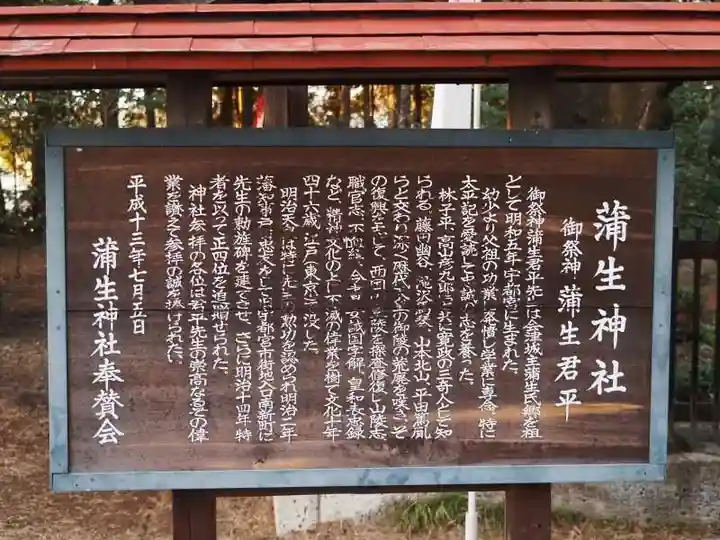 蒲生神社
御祭神 蒲生君平
御祭神蒲生君平先生は会津城主蒲生氏郷を祖
として明和五年宇都宮に生まれた
幼少より父祖の功業に奮憤し学業に専念、特に
太平記を愛読して至誠の志を養った
林子平、高山彦九郎と共に寛政の三奇人として知
られる。藤田幽谷、山本北山、平田篤胤
らと交わり深く歴代天皇の御陵の荒廃を嘆き、そ
の復興を志して、西国の陵を探査修復し山陵志、
職官志、不恤緯、女誡国字解、皇和表忠録
など、精神文化の上に不滅の偉業を樹て文化十年
四十六歳、江戸(東京)で没した
明治天皇は特に先生の勲功を認められ明治二年
藩知事戸田忠友をして宇都宮市街地入口南新町に
先生の勅旌碑を建てさせ、さらに明治十四年特
者を以って正四位を追贈せられた。
神社参拝の各位は君平先生の崇高な至る偉
業を讃えて参拝の誠を捧げられたい。
平成十三年七月五日
蒲生神社奉賛会